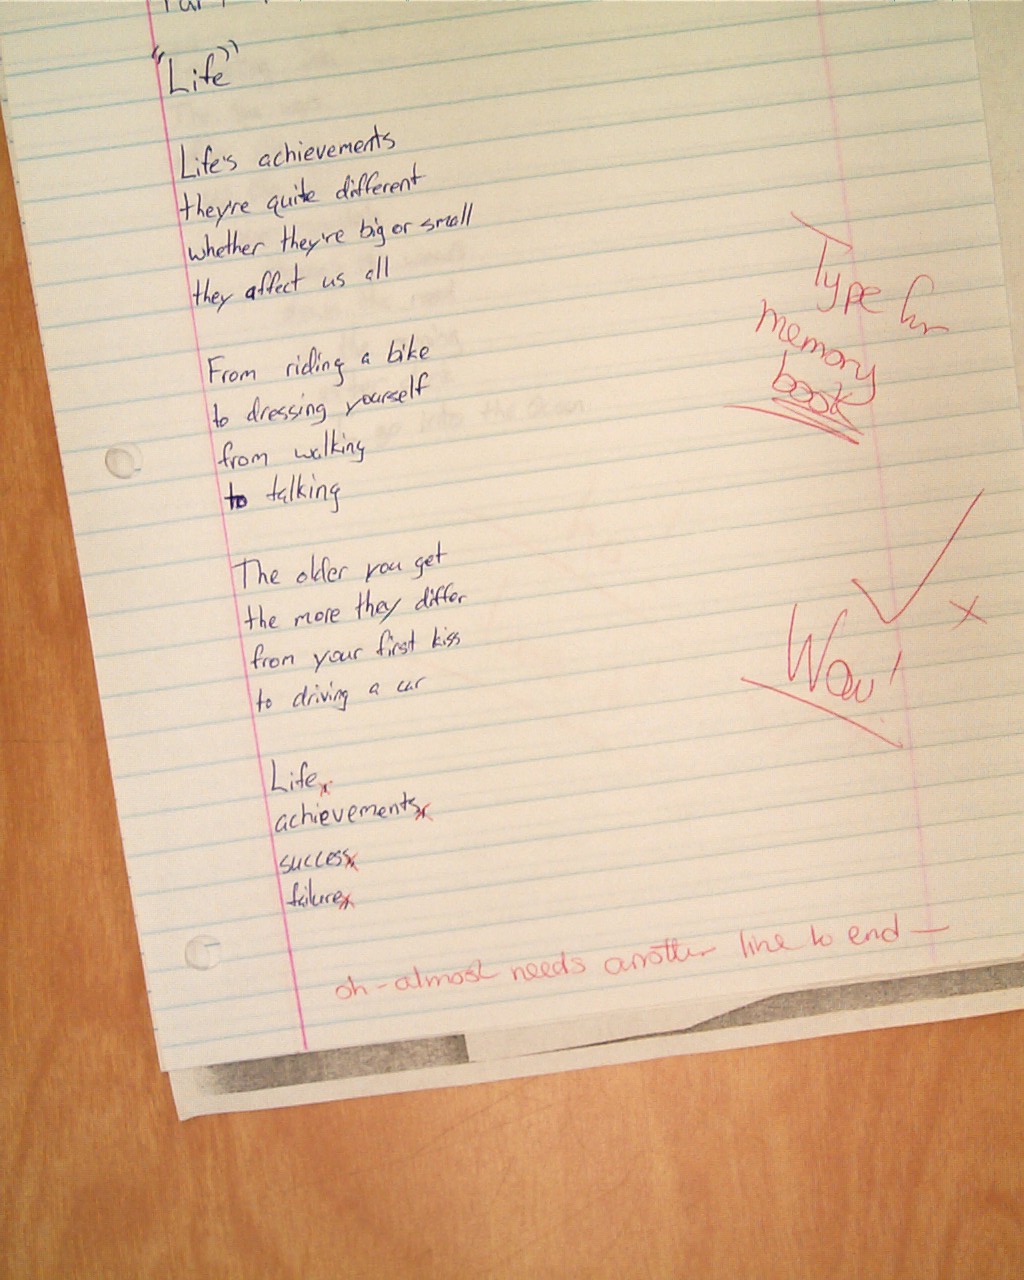 "Life"
Life's achievements
they're quite different
whether they're big or small
they affect us all
From riding a bike
to dressing yourself
from walking
to talking
The older you get
the more they differ
from your first kiss
to driving a car
Life
achievements
success
failure
Type for
memory
book
Wow!
oh-almost needs another line to end —